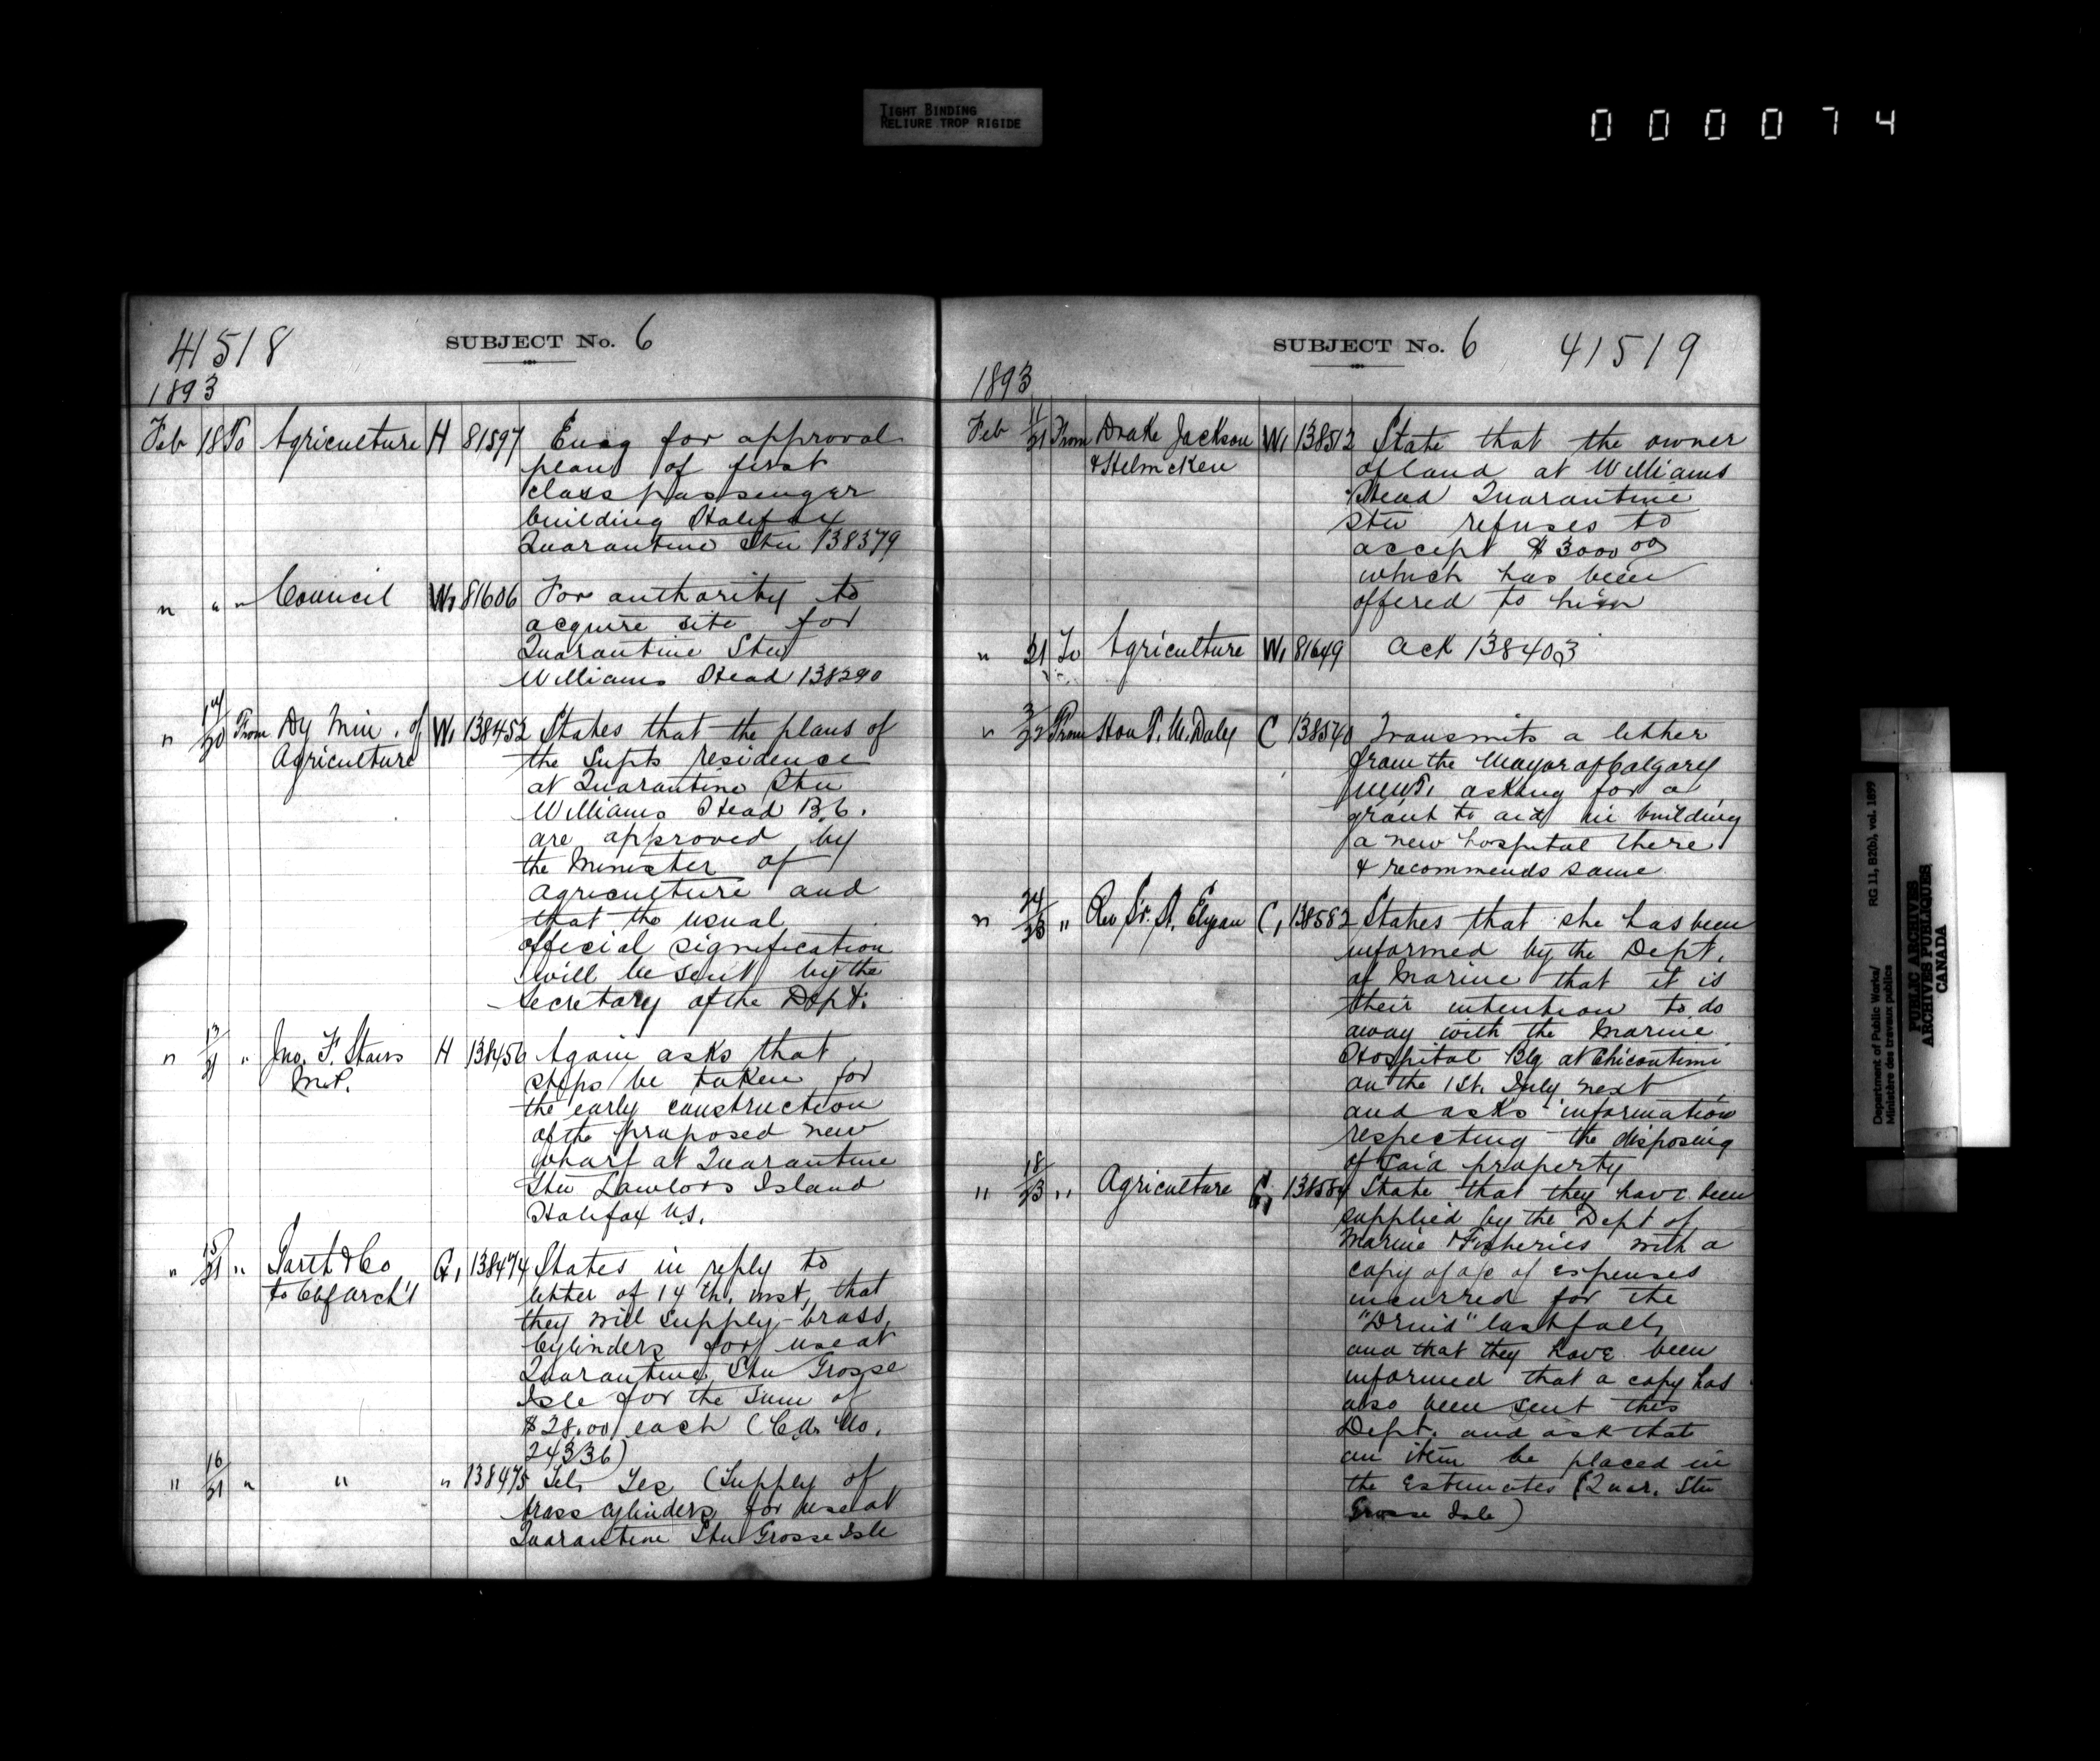 TIGHT BINDING
RELIURE TROP RIGIDE
000074
41518
SUBJECT No. 6
1893
Feb 18 To Agriculture H 81597 Encg for approval
plan of first
class passenger
building Halifax
Quarantine Stn 138379
" " " Council W, 81606 For authority to
acquire site for
Quarantine Stn
Williams Head 138290
" 14/20 From Dy Min. of W, 138452 States that the plans of
Agriculture the Supts residence
at Quarantine Stn
Williams Head B.C.
are approved by
the Minister of
Agriculture and
that the usual
official signification
will be sent by the
Secretary of the Dept.
" 13/21 " Jno. F. Stairs H 138456 Again asks that
M.P. steps be taken for
the early construction
of the proposed new
wharf at Quarantine
Stn Lawlors Island
Halifax N.S.
" 15/21 " Garth & Co G, 138474 States in reply to
to Chf Arch't letter of 14th. inst, that
they will supply brass
Cylinders for use at
Quarantine Stn Grosse
Isle for the sum of
$28.00 each (C.A. No.
24336)
" 16/21 " " " 138475 Tel, Yes (Supply of
brass cylinders for use at
Quarantine Stn Grosse Isle
SUBJECT No. 6
41519
1893
Feb 11/21 From Drake Jackson W, 138512 State that the owner
& Helmcken of land at Williams
Head Quarantine
Stn refuses to
accept $3000 00
which has been
offered to him
" 21 To Agriculture W, 81649 Ack 138403
" 3/22 From Hon T. M. Daly C 138540 Transmits a letter
from the Mayor of Calgary
N.W.T. asking for a
grant to aid in building
a new hospital there
& recommends same
" 24/23 " Rev Sr. St. C, 138582 States that she has been
informed by the Dept.
of Marine that it is
their intention to do
away with the Marine
Hospital Blg at Chicoutimi
on the 1st. July next
and asks information
respecting the disposing
of said property
" 18/23 " Agriculture G, 138584 State that they have been
supplied by the Dept of
Marine & Fisheries with a
copy of a/c of expenses
incurred for the
"Druid" last fall,
and that they have been
informed that a copy has
also been sent this
Dept. and ask that
an item be placed in
the Estimates (Quar. Stn
Grosse Isle)
Department of Public Works/ RG 11, B2(b), vol. 1899
Ministère des travaux publics
PUBLIC ARCHIVES
ARCHIVES PUBLIQUES
CANADA